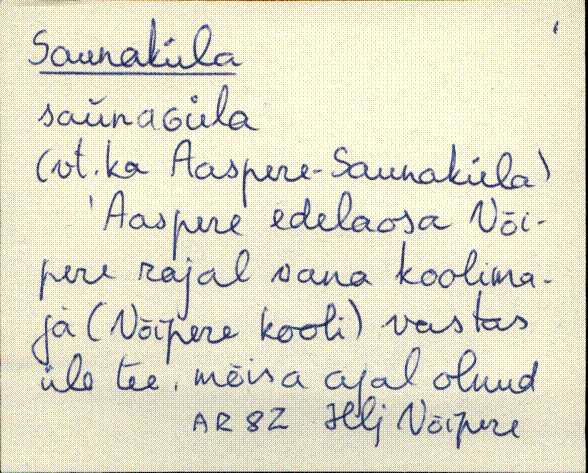 Saunaküla
saùnaGüla
(vt. ka Aaspere-Saunaküla)
'Aaspere edelaosa Või-
pere rajal vana koolima-
ja (Võipere kooli) vastas
üle tee, mõisa ajal olnud
AR 82 Hlj Võipere